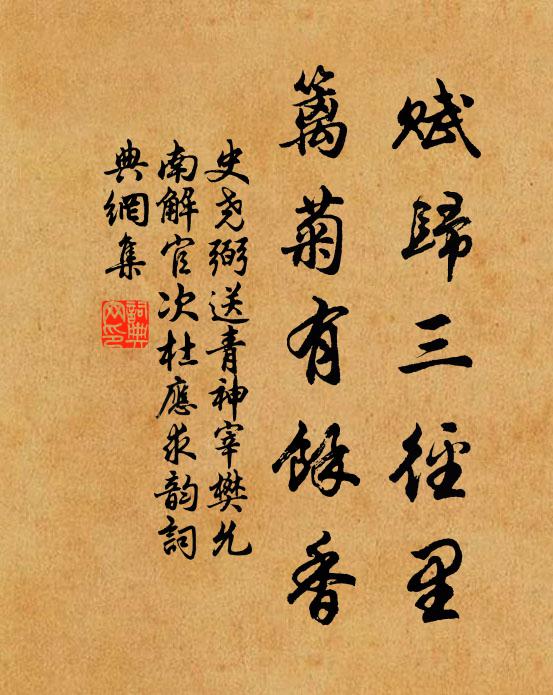 賦歸三徑里
籬菊有餘香
史堯弼送青神宰樊允
南解官次杜應求韵詞
典網集
詞典
网印